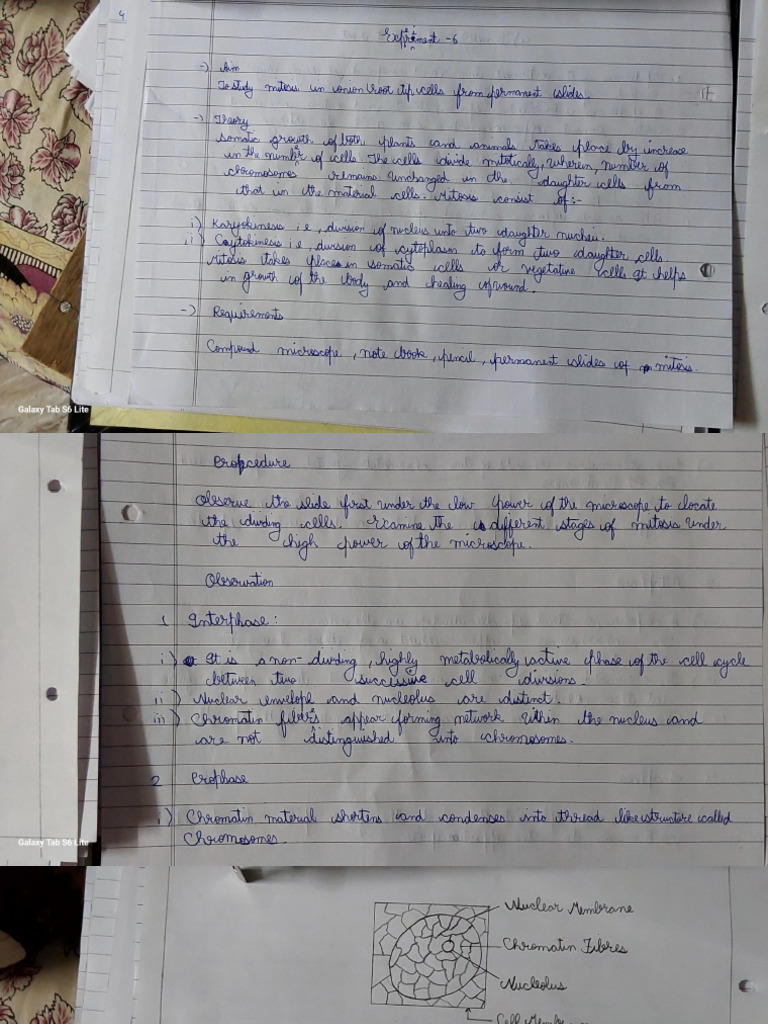 4
Expriment -6
-) Aim
To study mitosis in onion root tip cells from permanent slides.
-) Theory
somatic growth of both plants and animals takes place by increase
in the number of cells. The cells divide mitoticaly, wherein, number of
chromosomes remains unchanged in the daughter cells from
that in the material cells. Mitosis consist of:-
i) Karyokinesis i.e, division of nucleus into two daughter nucleii.
ii) Cytokinesis i.e, division of cytoplasm to form two daughter cells.
Mitosis takes place in somatic cells or vegetative cells It helps
in growth of the body and healing of wound.
-) Requirements
Compound microscope, note book, pencil, permanent slides of mitosis.
Galaxy Tab S6 Lite
Procedure
Observe the slide first under the low power of the microscope to locate
the dividing cells. Examine the different stages of mitosis under
the high power of the microscope.
Observation
1 Interphase:
i) It is a non-dividing, highly metabolically active phase of the cell cycle
between two successive cell divisions.
ii) Nuclear envelope and nucleolus are distinct.
iii) Chromatin fibers appear forming network within the nucleus and
are not distinguished into chromosomes.
2 Prophase
i) Chromatin material shortens and condenses into thread like structure called
Chromosomes.
Galaxy Tab S6 Lite
Nuclear Membrane
Chromatin Fibres
Nucleolus
Cell